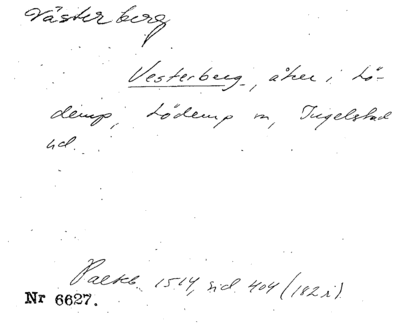 Västerberg
Vesterberg, åker i Lö-
demp, Lödemp m, Ingelstad
hd.
Palteb. 1514, sid 404 (182 r).
Nr 6627.